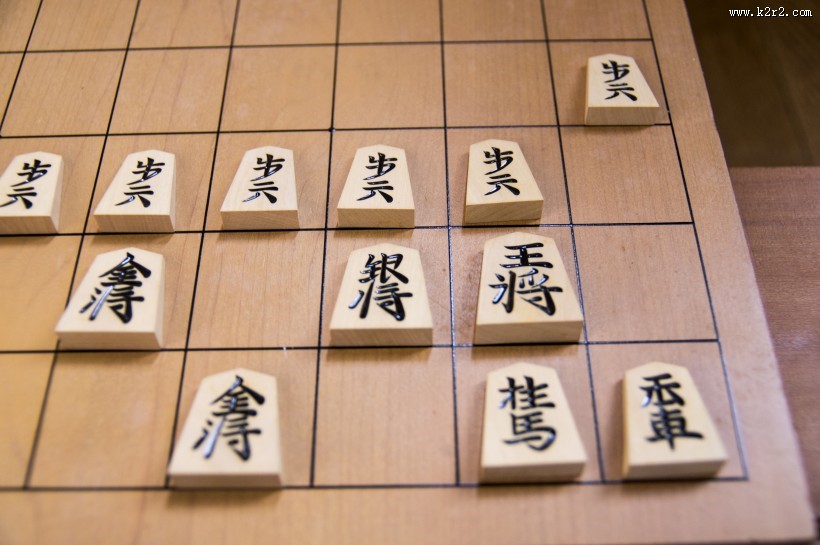 www.k2r2.com
歩兵
歩兵
歩兵
歩兵
歩兵
歩兵
金将
銀将
王将
金将
桂馬
香車